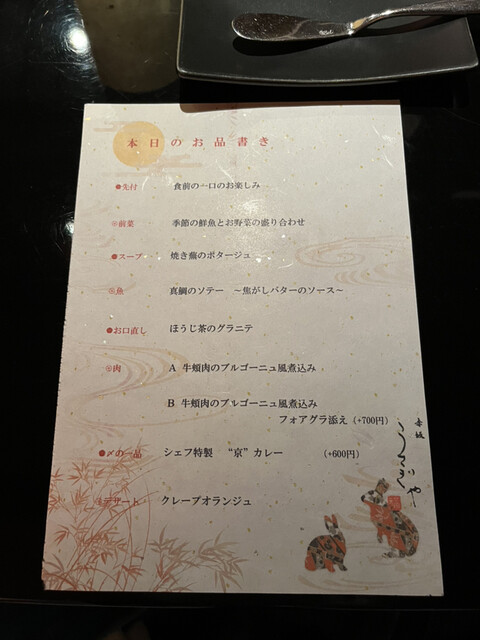 本日のお品書き
●先付 食前の一口のお楽しみ
◎前菜 季節の鮮魚とお野菜の盛り合わせ
●スープ 焼き蕪のポタージュ
◎魚 真鯛のソテー ～焦がしバターのソース～
●お口直し ほうじ茶のグラニテ
◎肉 A 牛頬肉のブルゴーニュ風煮込み
B 牛頬肉のブルゴーニュ風煮込み
フォアグラ添え (+700円)
●〆の一品 シェフ特製 “京”カレー (+600円)
◎デザート クレープオランジュ